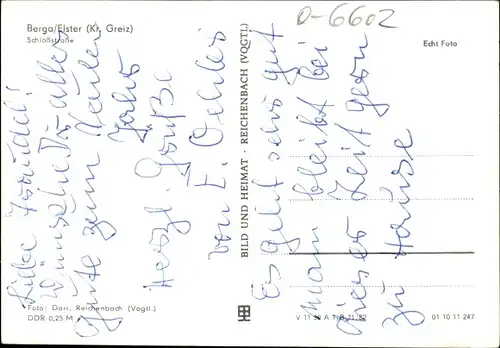 Berga/Elster (Kr. Greiz)
Schloßstraße
O-6602
Echt Foto
Liebe
Wünsche Dir alles
Gute zum Neuen
Jahr
Herzl. Grüße
von E. Oehler
Es geht sehr gut
man bleibt bei
dieser Zeit gern
zu Hause
BILD UND HEIMAT · REICHENBACH (VOGTL)
Foto: Darr, Reichenbach (Vogtl.)
DDR 0,25 M
V 11 50
01 10 11 247